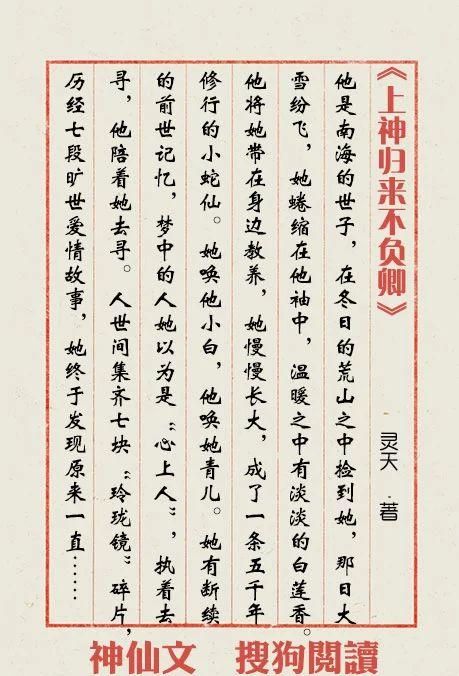 《上神归来不负卿》
灵天 著
他是南海的世子，在冬日的荒山之中捡到她，那日大
雪纷飞，她蜷缩在他袖中，温暖之中有淡淡的白莲香。
他将她带在身边教养，她慢慢长大，成了一条五千年
修行的小蛇仙。她唤他小白，他唤她青儿。她有断续
的前世记忆，梦中的人她以为是“心上人”，执着去
寻，他陪着她去寻。人世间集齐七块“玲珑镜”碎片，
历经七段旷世爱情故事，她终于发现原来一直……
神仙文 搜狗閲讀